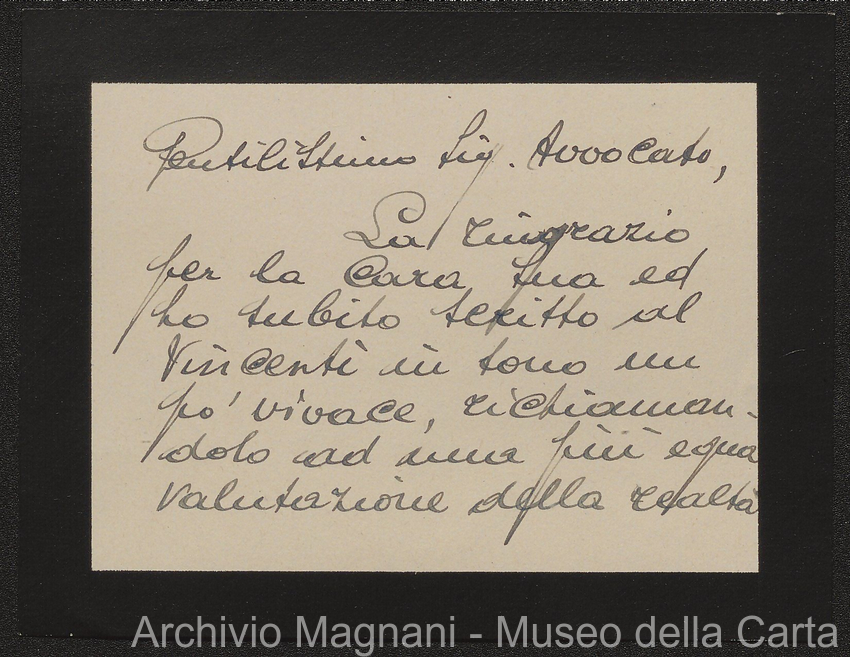 Gentilissimo Sig. Avvocato,
La ringrazio
per la Cara Sua ed
ho subito scritto al
Vincenti in tono un
po' vivace, richiaman-
dolo ad una più equa
valutazione della realtà
Archivio Magnani - Museo della Carta